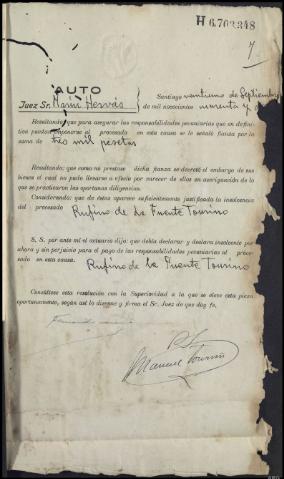 H 6.762.348
7
AUTO
Juez Sr.
Santiago veintiuno de Septiembre
de mil novecientos cuarenta y
Resultando: que para asegurar las responsabilidades pecuniarias que en defini-
tiva puedan imponerse al procesado en esta causa se le señaló fianza por la
suma de tres mil pesetas
Resultando: que como no prestase dicha fianza se decretó el embargo de sus
bienes el cual no pudo llevarse a efecto por carecer de ellos en averiguación de lo
que se practicaron las oportunas diligencias.
Considerando: que de éstas aparece suficientemente justificada la insolvencia
del procesado Rufino de La Fuente Tourino
S. S. por ante mí el actuario dijo: que debía declarar y declara insolvente por
ahora y sin perjuicio para el pago de las responsabilidades pecuniarias al proce-
sado en esta causa. Rufino de La Fuente Tourino
Consúltese esta resolución con la Superioridad a la que se eleve esta pieza
oportunamente, según así lo dispone y firma el Sr. Juez de que doy fe.
Manuel Tourino